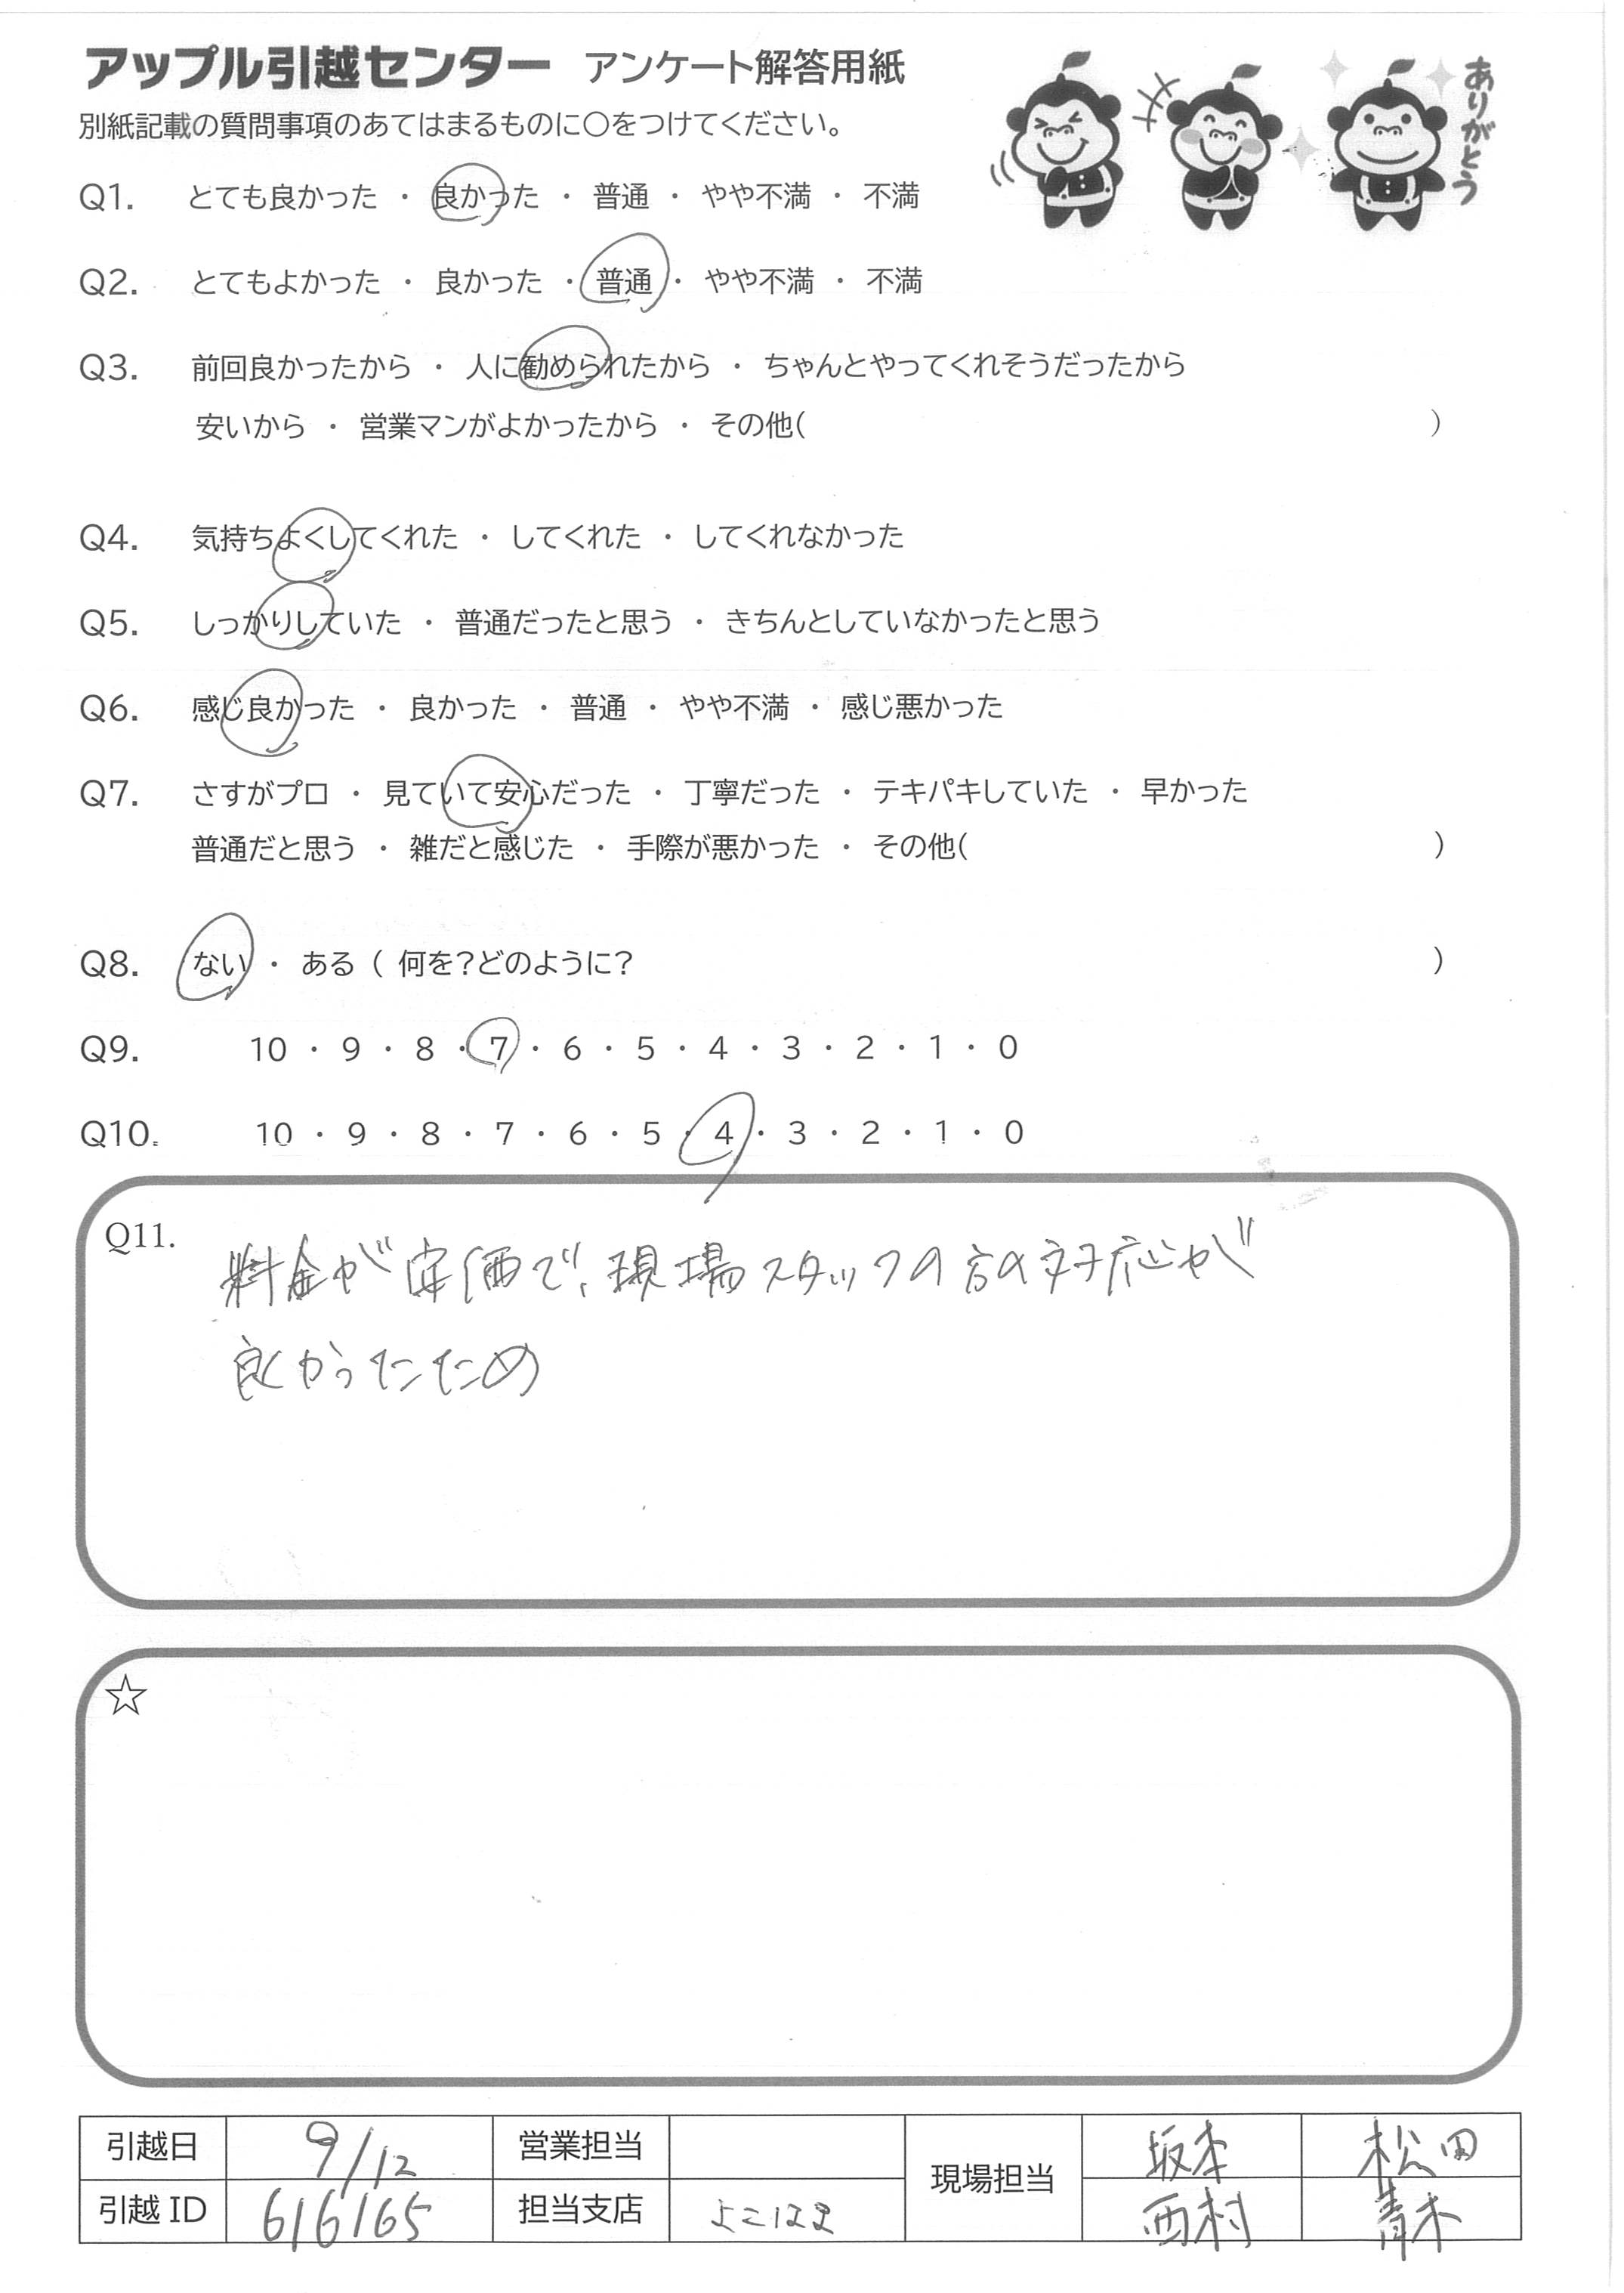 アップル引越センター アンケート解答用紙
ありがとう
別紙記載の質問事項のあてはまるものに〇をつけてください。
Q1. とても良かった ・ 良かった ・ 普通 ・ やや不満 ・ 不満
Q2. とてもよかった ・ 良かった ・ 普通 ・ やや不満 ・ 不満
Q3. 前回良かったから ・ 人に勧められたから ・ ちゃんとやってくれそうだったから
安いから ・ 営業マンがよかったから ・ その他( )
Q4. 気持ちよくしてくれた ・ してくれた ・ してくれなかった
Q5. しっかりしていた ・ 普通だったと思う ・ きちんとしていなかったと思う
Q6. 感じ良かった ・ 良かった ・ 普通 ・ やや不満 ・ 感じ悪かった
Q7. さすがプロ ・ 見ていて安心だった ・ 丁寧だった ・ テキパキしていた ・ 早かった
普通だと思う ・ 雑だと感じた ・ 手際が悪かった ・ その他( )
Q8. ない ・ ある ( 何を?どのように? )
Q9. 10 ・ 9 ・ 8 ・ 7 ・ 6 ・ 5 ・ 4 ・ 3 ・ 2 ・ 1 ・ 0
Q10. 10 ・ 9 ・ 8 ・ 7 ・ 6 ・ 5 ・ 4 ・ 3 ・ 2 ・ 1 ・ 0
Q11. 料金が安価で、現場スタッフの方の対応が
良かったため
☆
引越日 9/12 営業担当 現場担当 坂本 松田
引越ID 616165 担当支店 よこはま 西村 青木